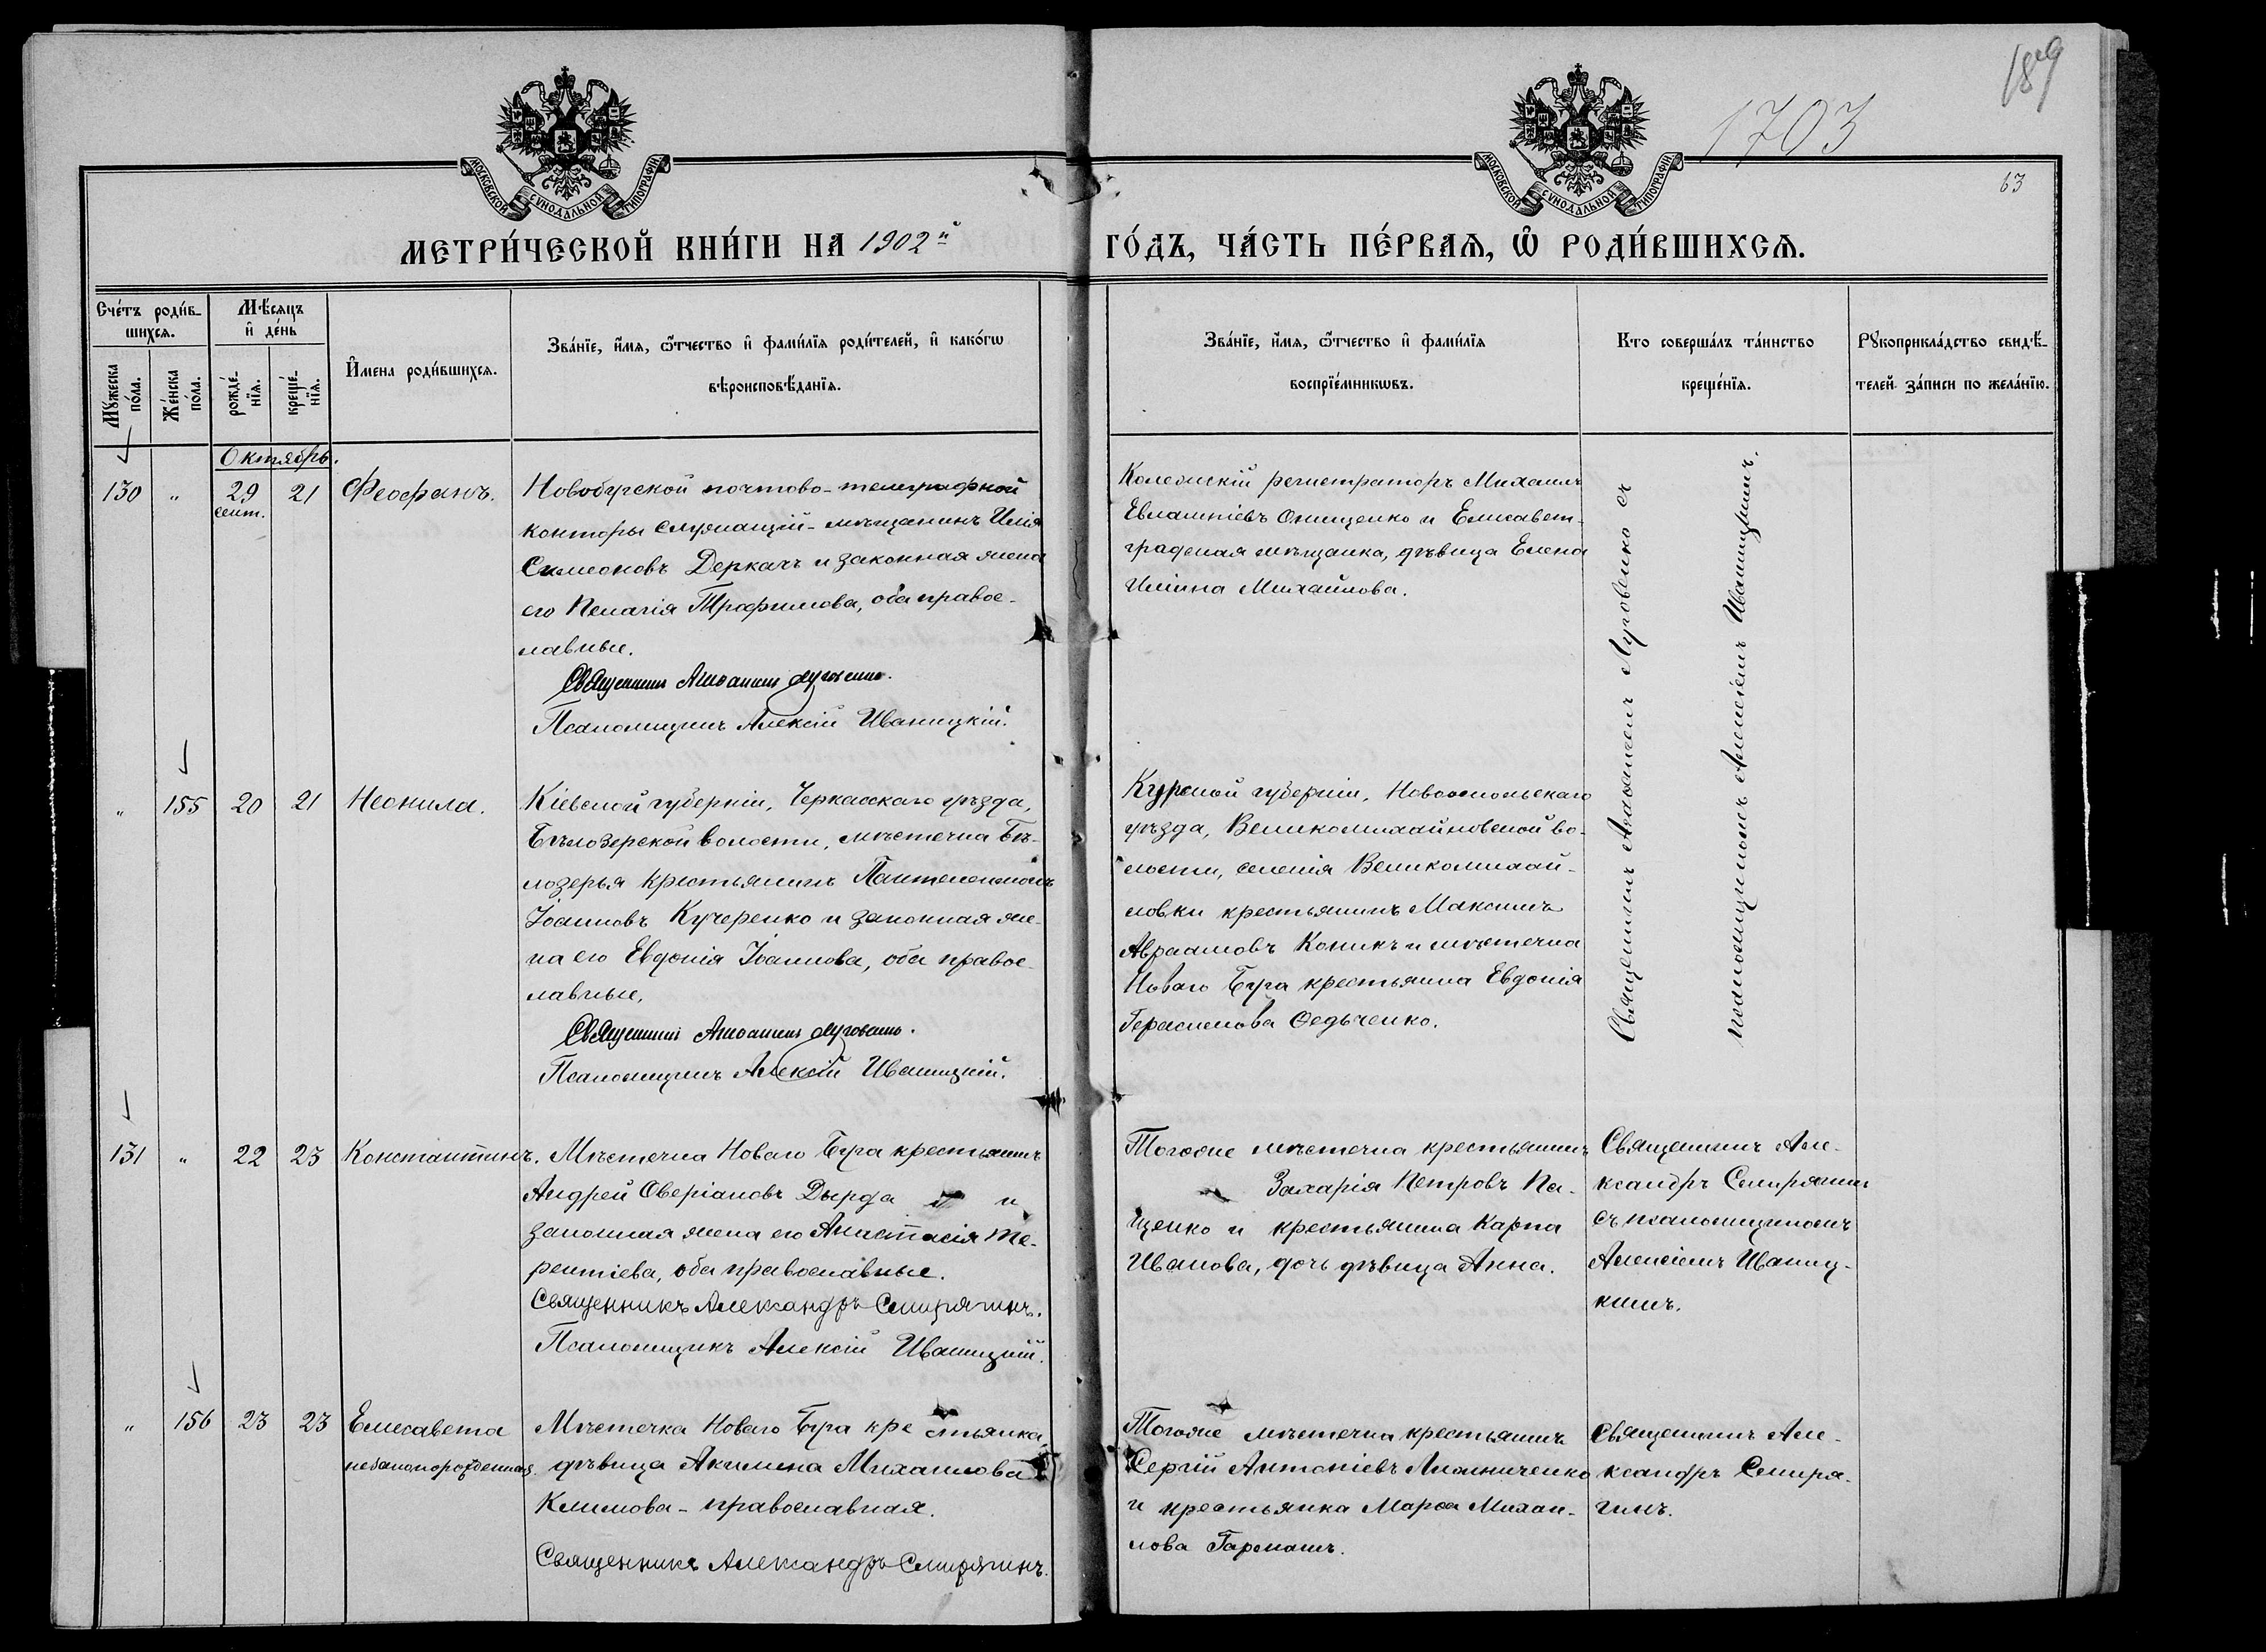 189
1703
63
МОСКОВСКОЙ СѴНОДАЛЬНОЙ ТИПОГРАФІИ
МОСКОВСКОЙ СѴНОДАЛЬНОЙ ТИПОГРАФІИ
МЕТРИ́ЧЕСКОЙ КНИ́ГИ НА 1902й
ГО́ДЪ, ЧА́СТЬ ПЕ́РВАѦ, Ѡ РОДИ́ВШИХСѦ.
Сче́тъ роди́в-
шихсѧ.
Мꙋ́жеска
по́ла.
Же́нска
по́ла.
Мѣ́сѧцъ
и҆ де́нь
рожде́-
нїѧ.
креще́-
нїѧ.
И҆мена роди́вшихсѧ.
Зва́нїе, и҆́мѧ, ѻ҆́тчество и҆ фами́лїѧ роди́телей, и҆ како́гѡ
вѣроисповѣ́данїѧ.
Зва́нїе, и҆́мѧ, ѻ҆́тчество и҆ фами́лїѧ
воспрїе́мникѡвъ.
Кто соверша́лъ та́инство
креще́нїѧ.
Рꙋкоприкла́дство свидѣ́-
телей за́писи по жела́нїю.
Октябрь.
130 " 29 21 Феофанъ.
сент.
Новобугской почтово-телеграфной
конторы служащій-мѣщанинъ Илія
Симеоновъ Деркачъ и законная жена
его Пелагія Трофимова, оба правос-
лавные.
Священникъ Аѳанасій Луговенко.
Псаломщикъ Алексій Иваницкій.
Колежскій регистраторъ Михаилъ
Евлампіевъ Онищенко и Елисавет-
градская мѣщанка, дѣвица Елена
Иліина Михайлова.
Священникъ Аѳанасій Луговенко съ
псаломщикомъ Алексіемъ Иваницкимъ.
" 155 20 21 Неонила.
Кіевской губерніи, Черкасскаго уѣзда,
Бѣлозерской волости, мѣстечка Бѣ-
лозерья крестьянинъ Пантелеимонъ
Іоанновъ Кучеренко и законная же-
на его Евдокія Іоаннова, оба правос-
лавные.
Священникъ Аѳанасій Луговенко.
Псаломщикъ Алексій Иваницкій.
Курской губерніи, Новооскольскаго
уѣзда, Великомихайловской во-
лости, селенія Великомихай-
ловки крестьянинъ Максимъ
Авраамовъ Коникъ и мѣстечка
Новаго Буга крестьянка Евдокія
Герасимова Ѳедьченко.
131 " 22 23 Константинъ.
Мѣстечка Новаго Буга крестьянинъ
Андрей Оверіановъ Дырда и
законная жена его Анастасія Те-
рентіева, оба православные.
Священникъ Александръ Смирягинъ.
Псаломщикъ Алексій Иваницкій.
Тогоже мѣстечка крестьянинъ
Захарія Петровъ Па-
щенко и крестьянина Карпа
Иванова, дочь дѣвица Анна.
Священникъ Але-
ксандръ Смирягинъ
съ псаломщикомъ
Алексіемъ Иваниц-
кимъ.
" 156 23 23 Елисавета
незаконорожденная.
Мѣстечка Новаго Буга крестьянка
дѣвица Акилина Михаилова
Климова - православная.
Священникъ Александръ Смирягинъ.
Тогоже мѣстечка крестьянинъ
Сергій Антоніевъ
и крестьянка Марѳа Михаи-
лова
Священникъ Але-
ксандръ Смиря-
гинъ.